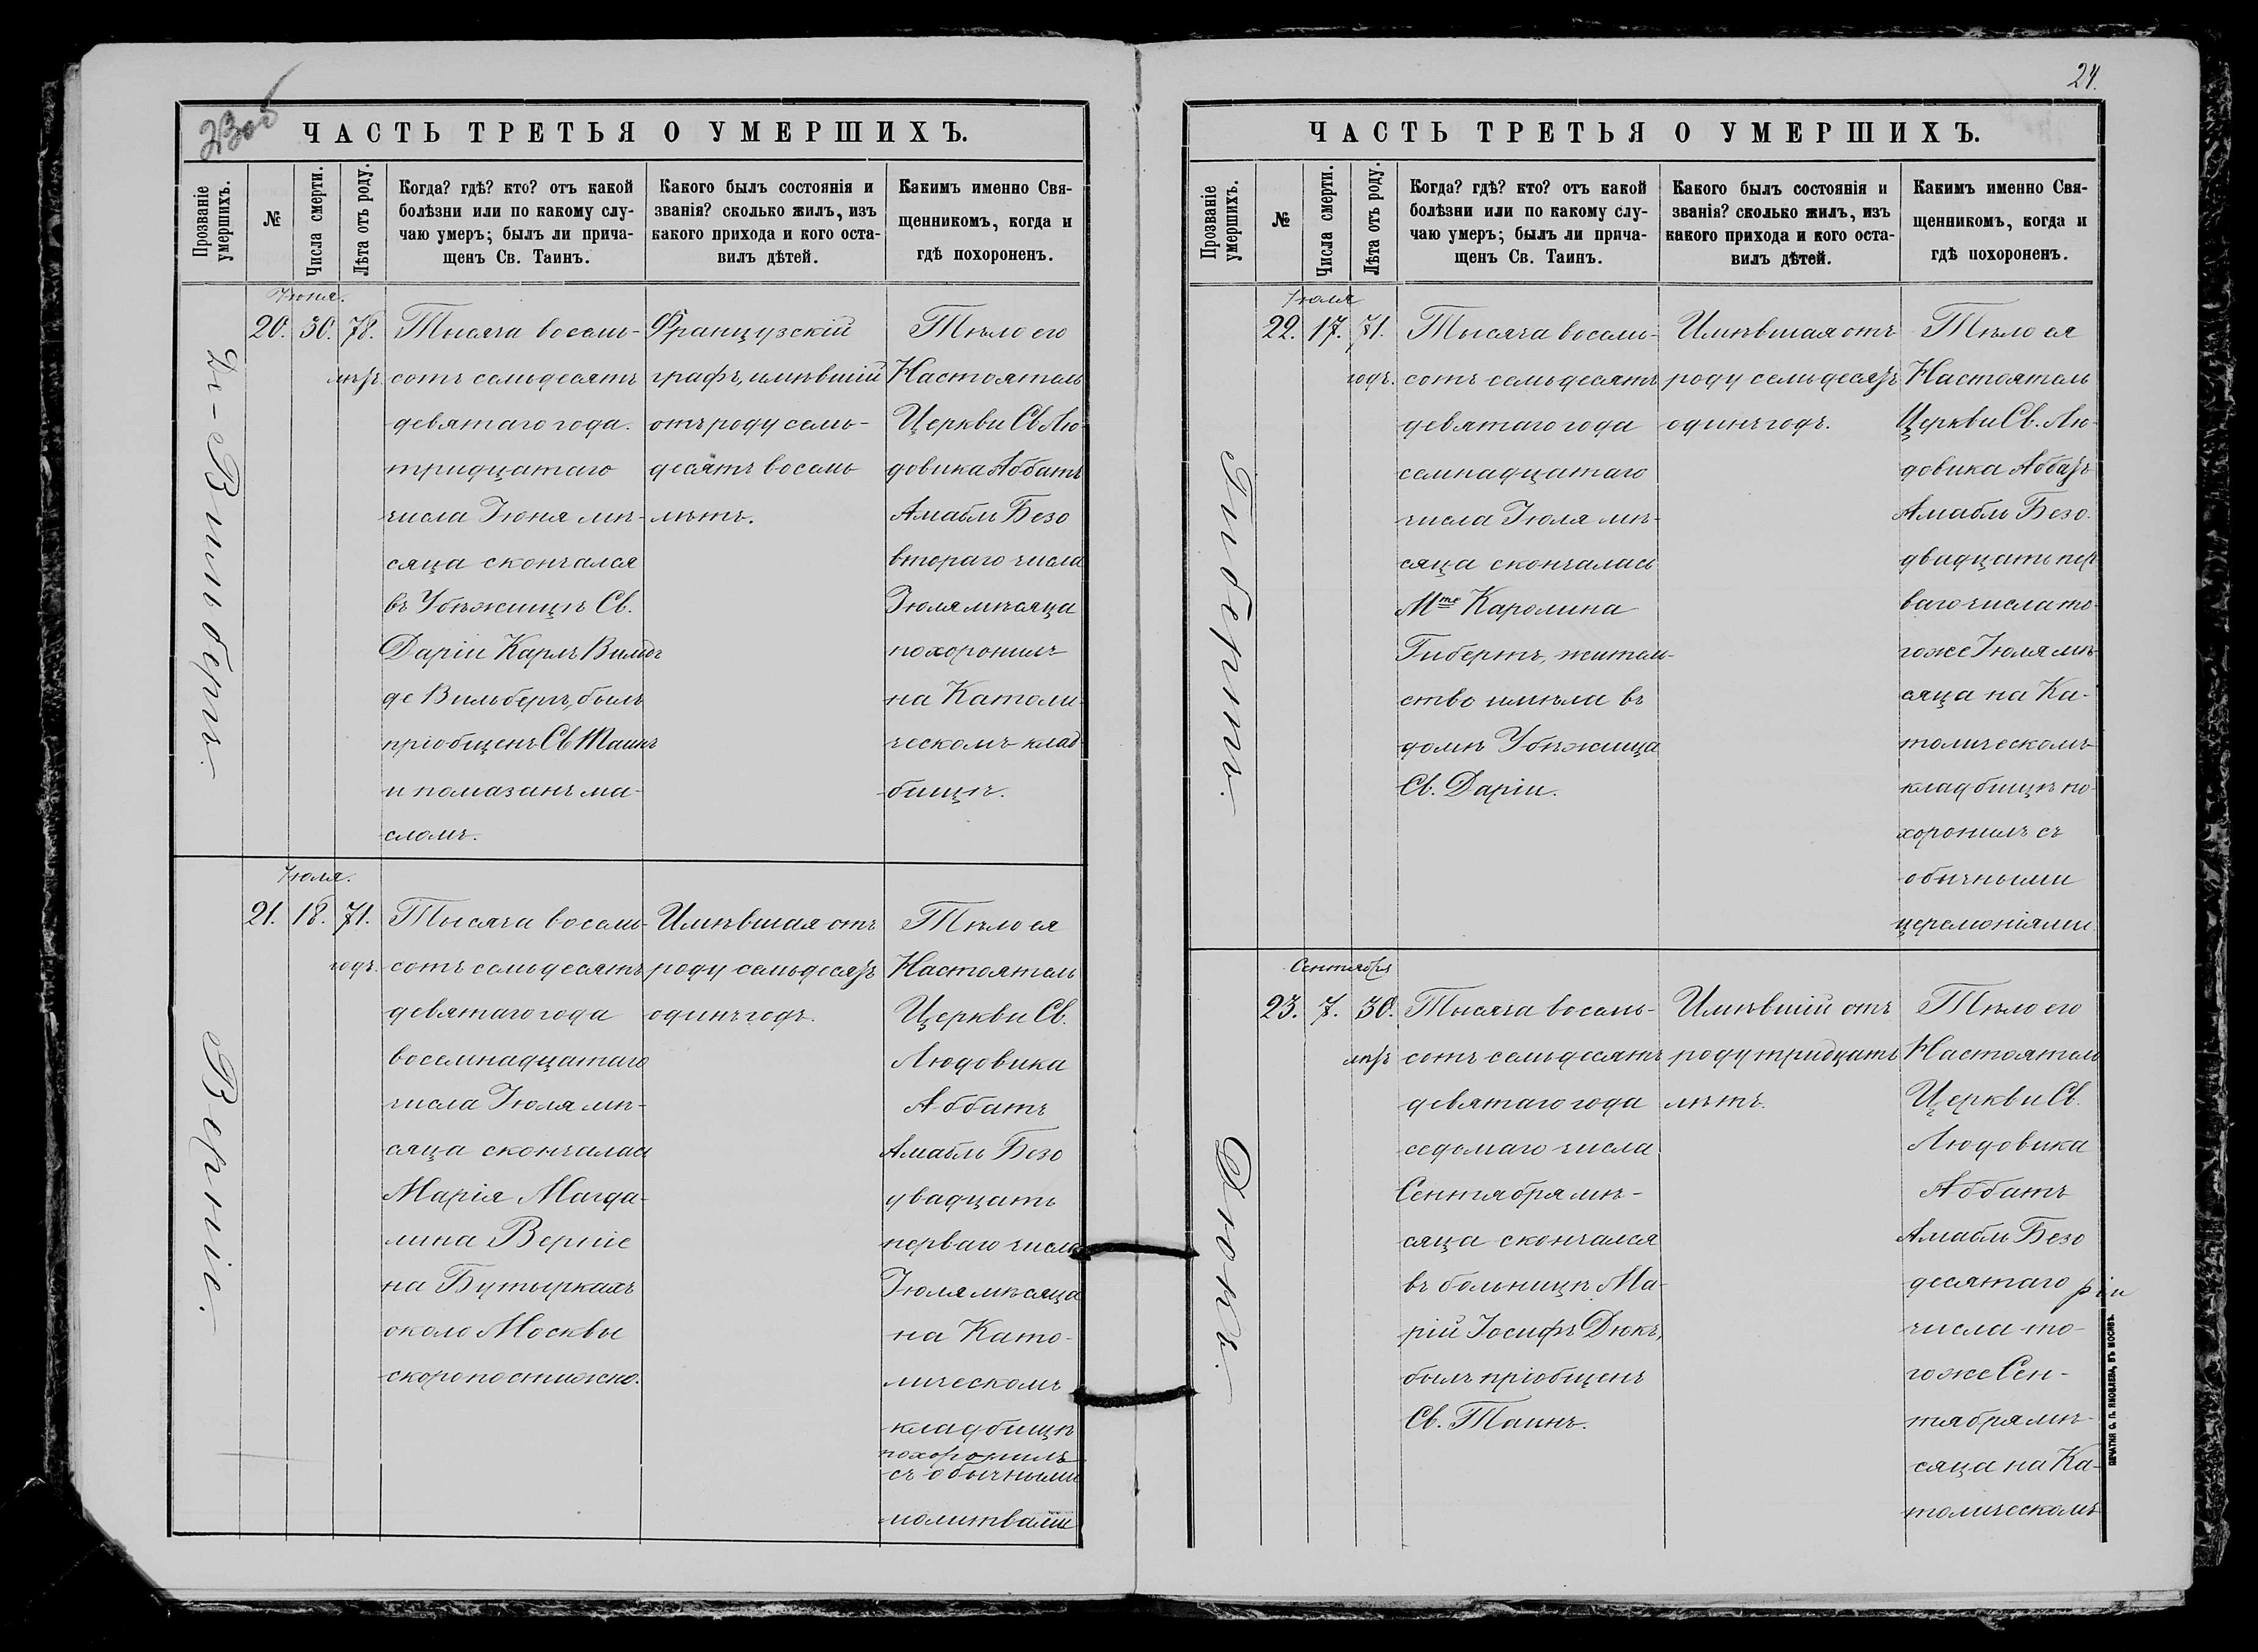 23об
ЧАСТЬ ТРЕТЬЯ О УМЕРШИХЪ.
Прозваніе умершихъ.
№
Числа смерти.
Лѣта отъ роду.
Когда? гдѣ? кто? отъ какой
болѣзни или по какому слу-
чаю умеръ; былъ ли прича-
щенъ Св. Таинъ.
Какого былъ состоянія и
званія? сколько жилъ, изъ
какого прихода и кого оста-
вилъ дѣтей.
Какимъ именно Свя-
щенникомъ, когда и
гдѣ похороненъ.
Де-Вильбергъ.
Іюня.
20. 30. 78.
лѣтъ.
Тысяча восемь-
сотъ семьдесятъ
девятаго года.
тридцатаго
числа Іюня мѣ-
сяца скончался
въ Убѣжищѣ Св.
Даріи Карлъ Вильдъ
де Вильбергъ, былъ
пріобщенъ Св Таинъ
и помазанъ ма-
сломъ.
Французскій
графъ, имѣвшій
отъ роду семь-
десятъ восемь
лѣтъ.
Тѣло его
Настоятель
Церкви Св Лю-
довика Аббатъ
Амабль Безо
втораго числа
Іюля мѣсяца
похоронилъ
на Католи-
ческомъ клад-
бищѣ.
Верніе.
Іюля.
21. 18. 71.
годъ.
Тысяча восемь-
сотъ семьдесятъ
девятаго года
восемнадцатаго
числа Іюля мѣ-
сяца скончалась
Марія Магда-
лина Верніе
на Бутыркахъ
около Москвы
скоропостижно.
Имѣвшая отъ
роду семьдесятъ
одинъ годъ.
Тѣло ея
Настоятель
Церкви Св.
Людовика
Аббатъ
Амабль Безо
двадцать
перваго числа
Іюля мѣсяца
на Като-
лическомъ
кладбищѣ
похоронилъ
съ обычными
молитвами
24.
ЧАСТЬ ТРЕТЬЯ О УМЕРШИХЪ.
Прозваніе умершихъ.
№
Числа смерти.
Лѣта отъ роду.
Когда? гдѣ? кто? отъ какой
болѣзни или по какому слу-
чаю умеръ; былъ ли прича-
щенъ Св. Таинъ.
Какого былъ состоянія и
званія? сколько жилъ, изъ
какого прихода и кого оста-
вилъ дѣтей.
Какимъ именно Свя-
щенникомъ, когда и
гдѣ похороненъ.
Гибертъ.
Іюля
22. 17. 71.
годъ.
Тысяча восемь-
сотъ семьдесятъ
девятаго года
семнадцатаго
числа Іюля мѣ-
сяца скончалась
Mme Каролина
Гибертъ, житель-
ство имѣла въ
домѣ Убѣжища
Св. Даріи.
Имѣвшая отъ
роду семьдесятъ
одинъ годъ.
Тѣло ея
Настоятель
Церкви Св. Лю-
довика Аббатъ
Амабль Безо.
двадцать пер-
ваго числа то-
гоже Іюля мѣ-
сяца на Ка-
толическомъ
кладбищѣ по-
хоронилъ съ
обычными
церемоніями
Дюкъ.
Сентября
23. 7. 30.
лѣтъ
Тысяча восемь-
сотъ семьдесятъ
девятаго года
седьмаго числа
Сентября мѣ-
сяца скончался
въ больницѣ Ма-
рій Іосифъ Дюкъ,
былъ пріобщенъ
Св. Таинъ.
Имѣвшій отъ
роду тридцать
лѣтъ.
Тѣло его
Настоятель
Церкви Св.
Людовика
Аббатъ
Амабль Безо
десятаго
ріи
числа то-
гоже Сен-
тября мѣ-
сяца на Ка-
толическомъ
ПЕЧАТНЯ С. П. ЯКОВЛЕВА, ВЪ МОСКВѢ.